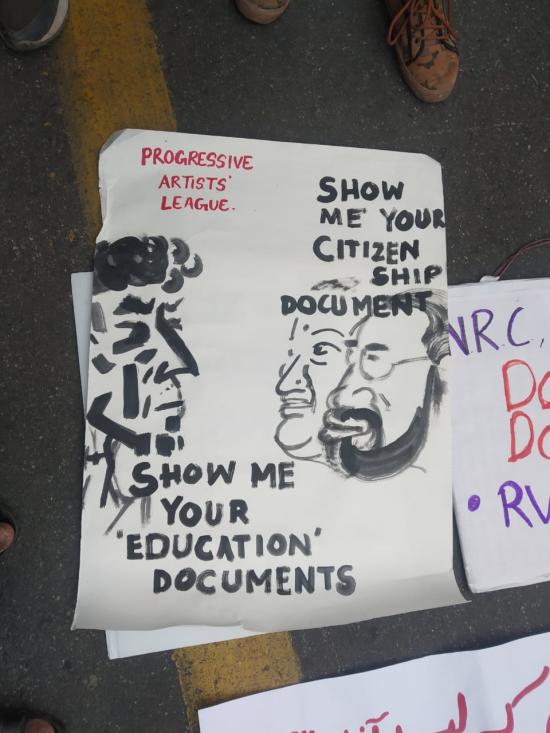 PROGRESSIVE
ARTISTS'
LEAGUE.
SHOW
ME YOUR
CITIZEN
SHIP
DOCUMENT
SHOW ME
YOUR
'EDUCATION'
DOCUMENTS
NRC,
• RV